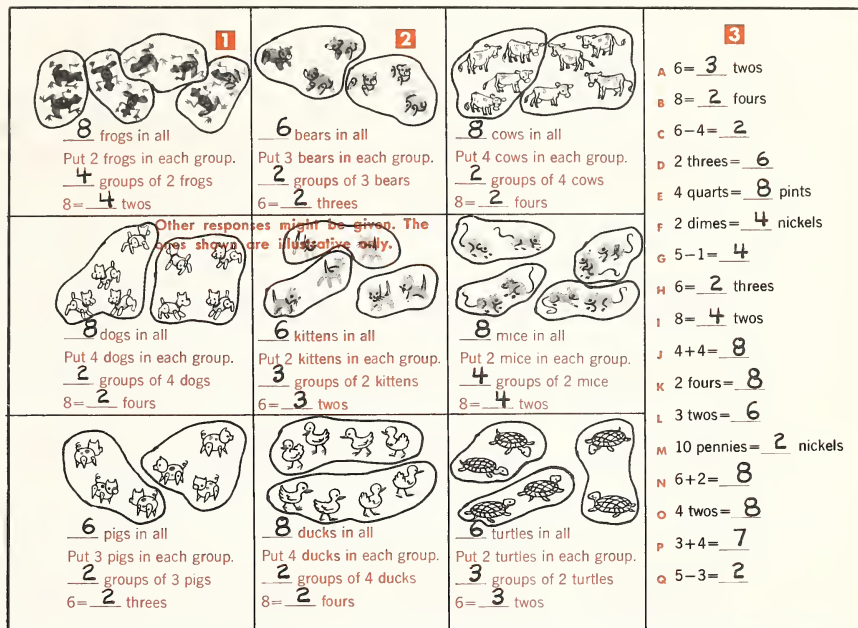 1
8 frogs in all
Put 2 frogs in each group.
4 groups of 2 frogs
8= 4 twos
2
6 bears in all
Put 3 bears in each group.
2 groups of 3 bears
6= 2 threes
8 cows in all
Put 4 cows in each group.
2 groups of 4 cows
8= 2 fours
Other responses might be given. The
ones shown are illustrative only.
8 dogs in all
Put 4 dogs in each group.
2 groups of 4 dogs
8= 2 fours
6 kittens in all
Put 2 kittens in each group.
3 groups of 2 kittens
6= 3 twos
8 mice in all
Put 2 mice in each group.
4 groups of 2 mice
8= 4 twos
6 pigs in all
Put 3 pigs in each group.
2 groups of 3 pigs
6= 2 threes
8 ducks in all
Put 4 ducks in each group.
2 groups of 4 ducks
8= 2 fours
6 turtles in all
Put 2 turtles in each group.
3 groups of 2 turtles
6= 3 twos
3
A 6= 3 twos
B 8= 2 fours
C 6-4= 2
D 2 threes= 6
E 4 quarts= 8 pints
F 2 dimes= 4 nickels
G 5-1= 4
H 6= 2 threes
I 8= 4 twos
J 4+4= 8
K 2 fours= 8
L 3 twos= 6
M 10 pennies= 2 nickels
N 6+2= 8
O 4 twos= 8
P 3+4= 7
Q 5-3= 2